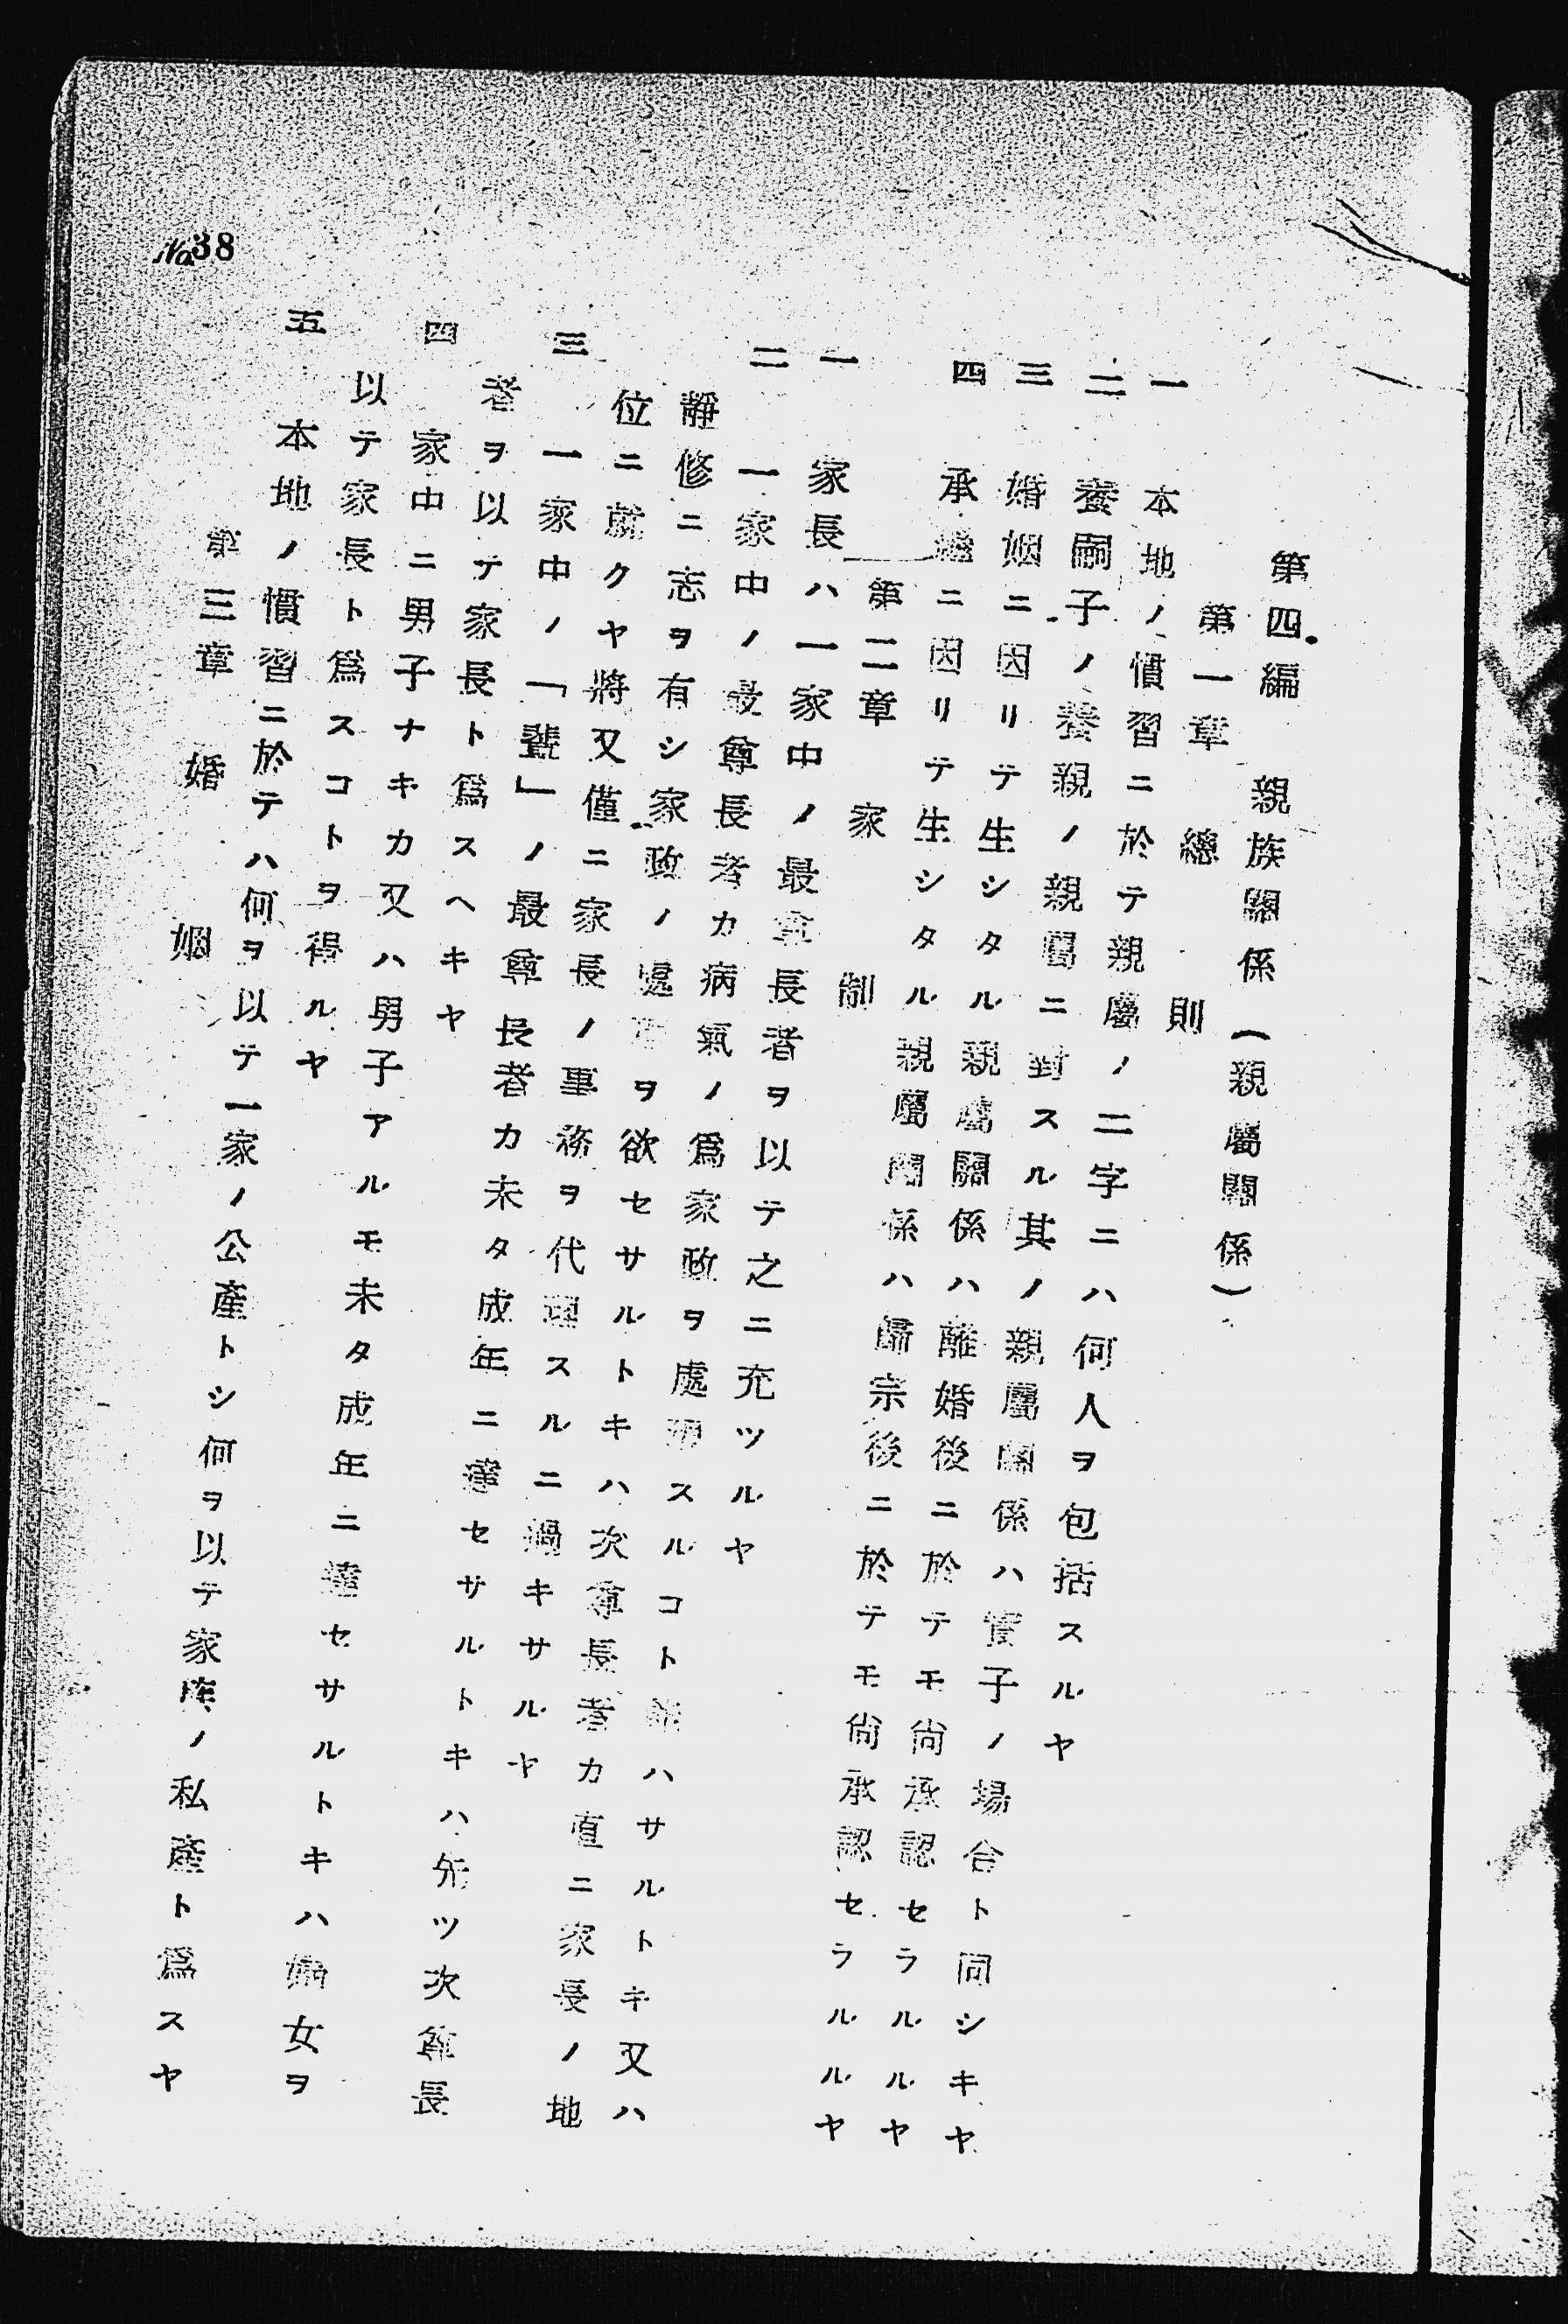 第四編 親族關係(親屬關係)
第一章 總則
一 本地ノ慣習ニ於テ親屬ノ二字ニハ何人ヲ包括スルヤ
二 養嗣子ノ養親ノ親屬ニ對スル其ノ親屬關係ハ實子ノ場合ト同シキヤ
三 婚姻ニ因リテ生シタル親屬關係ハ離婚後ニ於テモ尙承認セラルルヤ
四 承繼ニ因リテ生シタル親屬關係ハ歸宗後ニ於テモ尙承認セラルルヤ
第二章 家制
一 家長ハ一家中ノ最尊長者ヲ以テ之ニ充ツルヤ
二 一家中ノ最尊長者カ病氣ノ爲家政ヲ處理スルコト能ハサルトキ又ハ
靜修ニ志ヲ有シ家政ノ處理ヲ欲セサルトキハ次尊長者カ直ニ家長ノ地
位ニ就クヤ將又僅ニ家長ノ事務ヲ代理スルニ過キサルヤ
三 一家中ノ「輩」ノ最尊長者カ未タ成年ニ達セサルトキハ先ツ次尊長
者ヲ以テ家長ト爲スヘキヤ
四 家中ニ男子ナキカ又ハ男子アルモ未タ成年ニ達セサルトキハ婦女ヲ
以テ家長ト爲スコトヲ得ルヤ
五 本地ノ慣習ニ於テハ何ヲ以テ一家ノ公產トシ何ヲ以テ家族ノ私產ト爲スヤ
第三章 婚姻
No.38